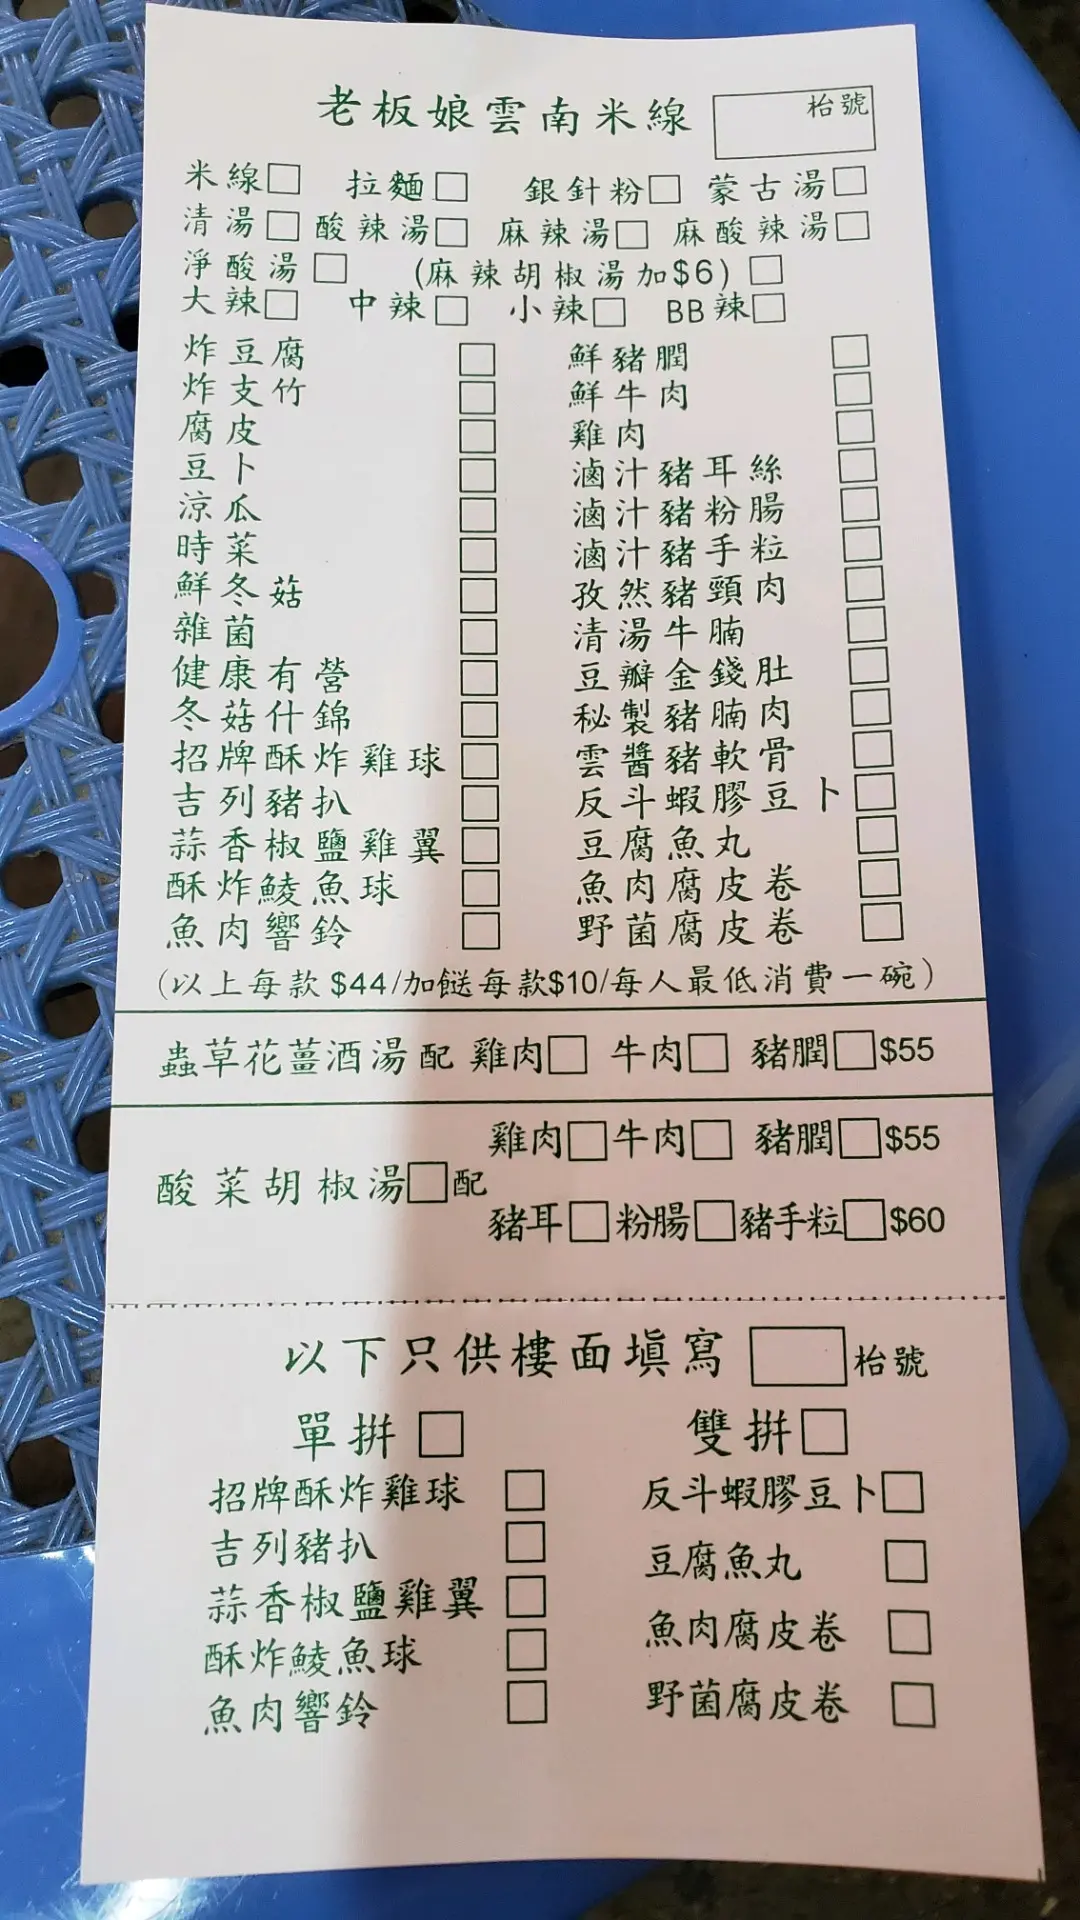 老板娘雲南米線 枱號
米線□ 拉麵□ 銀針粉□ 蒙古湯□
清湯□ 酸辣湯□ 麻辣湯□ 麻酸辣湯□
淨酸湯□ (麻辣胡椒湯加$6)□
大辣□ 中辣□ 小辣□ BB辣□
炸豆腐□ 鮮豬膶□
炸支竹□ 鮮牛肉□
腐皮□ 雞肉□
豆卜□ 滷汁豬耳絲□
涼瓜□ 滷汁豬粉腸□
時菜□ 滷汁豬手粒□
鮮冬菇□ 孜然豬頸肉□
雜菌□ 清湯牛腩□
健康有營□ 豆瓣金錢肚□
冬菇什錦□ 秘製豬腩肉□
招牌酥炸雞球□ 雲醬豬軟骨□
吉列豬扒□ 反斗蝦膠豆卜□
蒜香椒鹽雞翼□ 豆腐魚丸□
酥炸鯪魚球□ 魚肉腐皮卷□
魚肉響鈴□ 野菌腐皮卷□
(以上每款$44/加餸每款$10/每人最低消費一碗)
蟲草花薑酒湯配 雞肉□ 牛肉□ 豬膶□$55
雞肉□牛肉□ 豬膶□$55
酸菜胡椒湯□配
豬耳□粉腸□豬手粒□$60
以下只供樓面填寫 枱號
單拼□ 雙拼□
招牌酥炸雞球□ 反斗蝦膠豆卜□
吉列豬扒□ 豆腐魚丸□
蒜香椒鹽雞翼□ 魚肉腐皮卷□
酥炸鯪魚球□ 野菌腐皮卷□
魚肉響鈴□